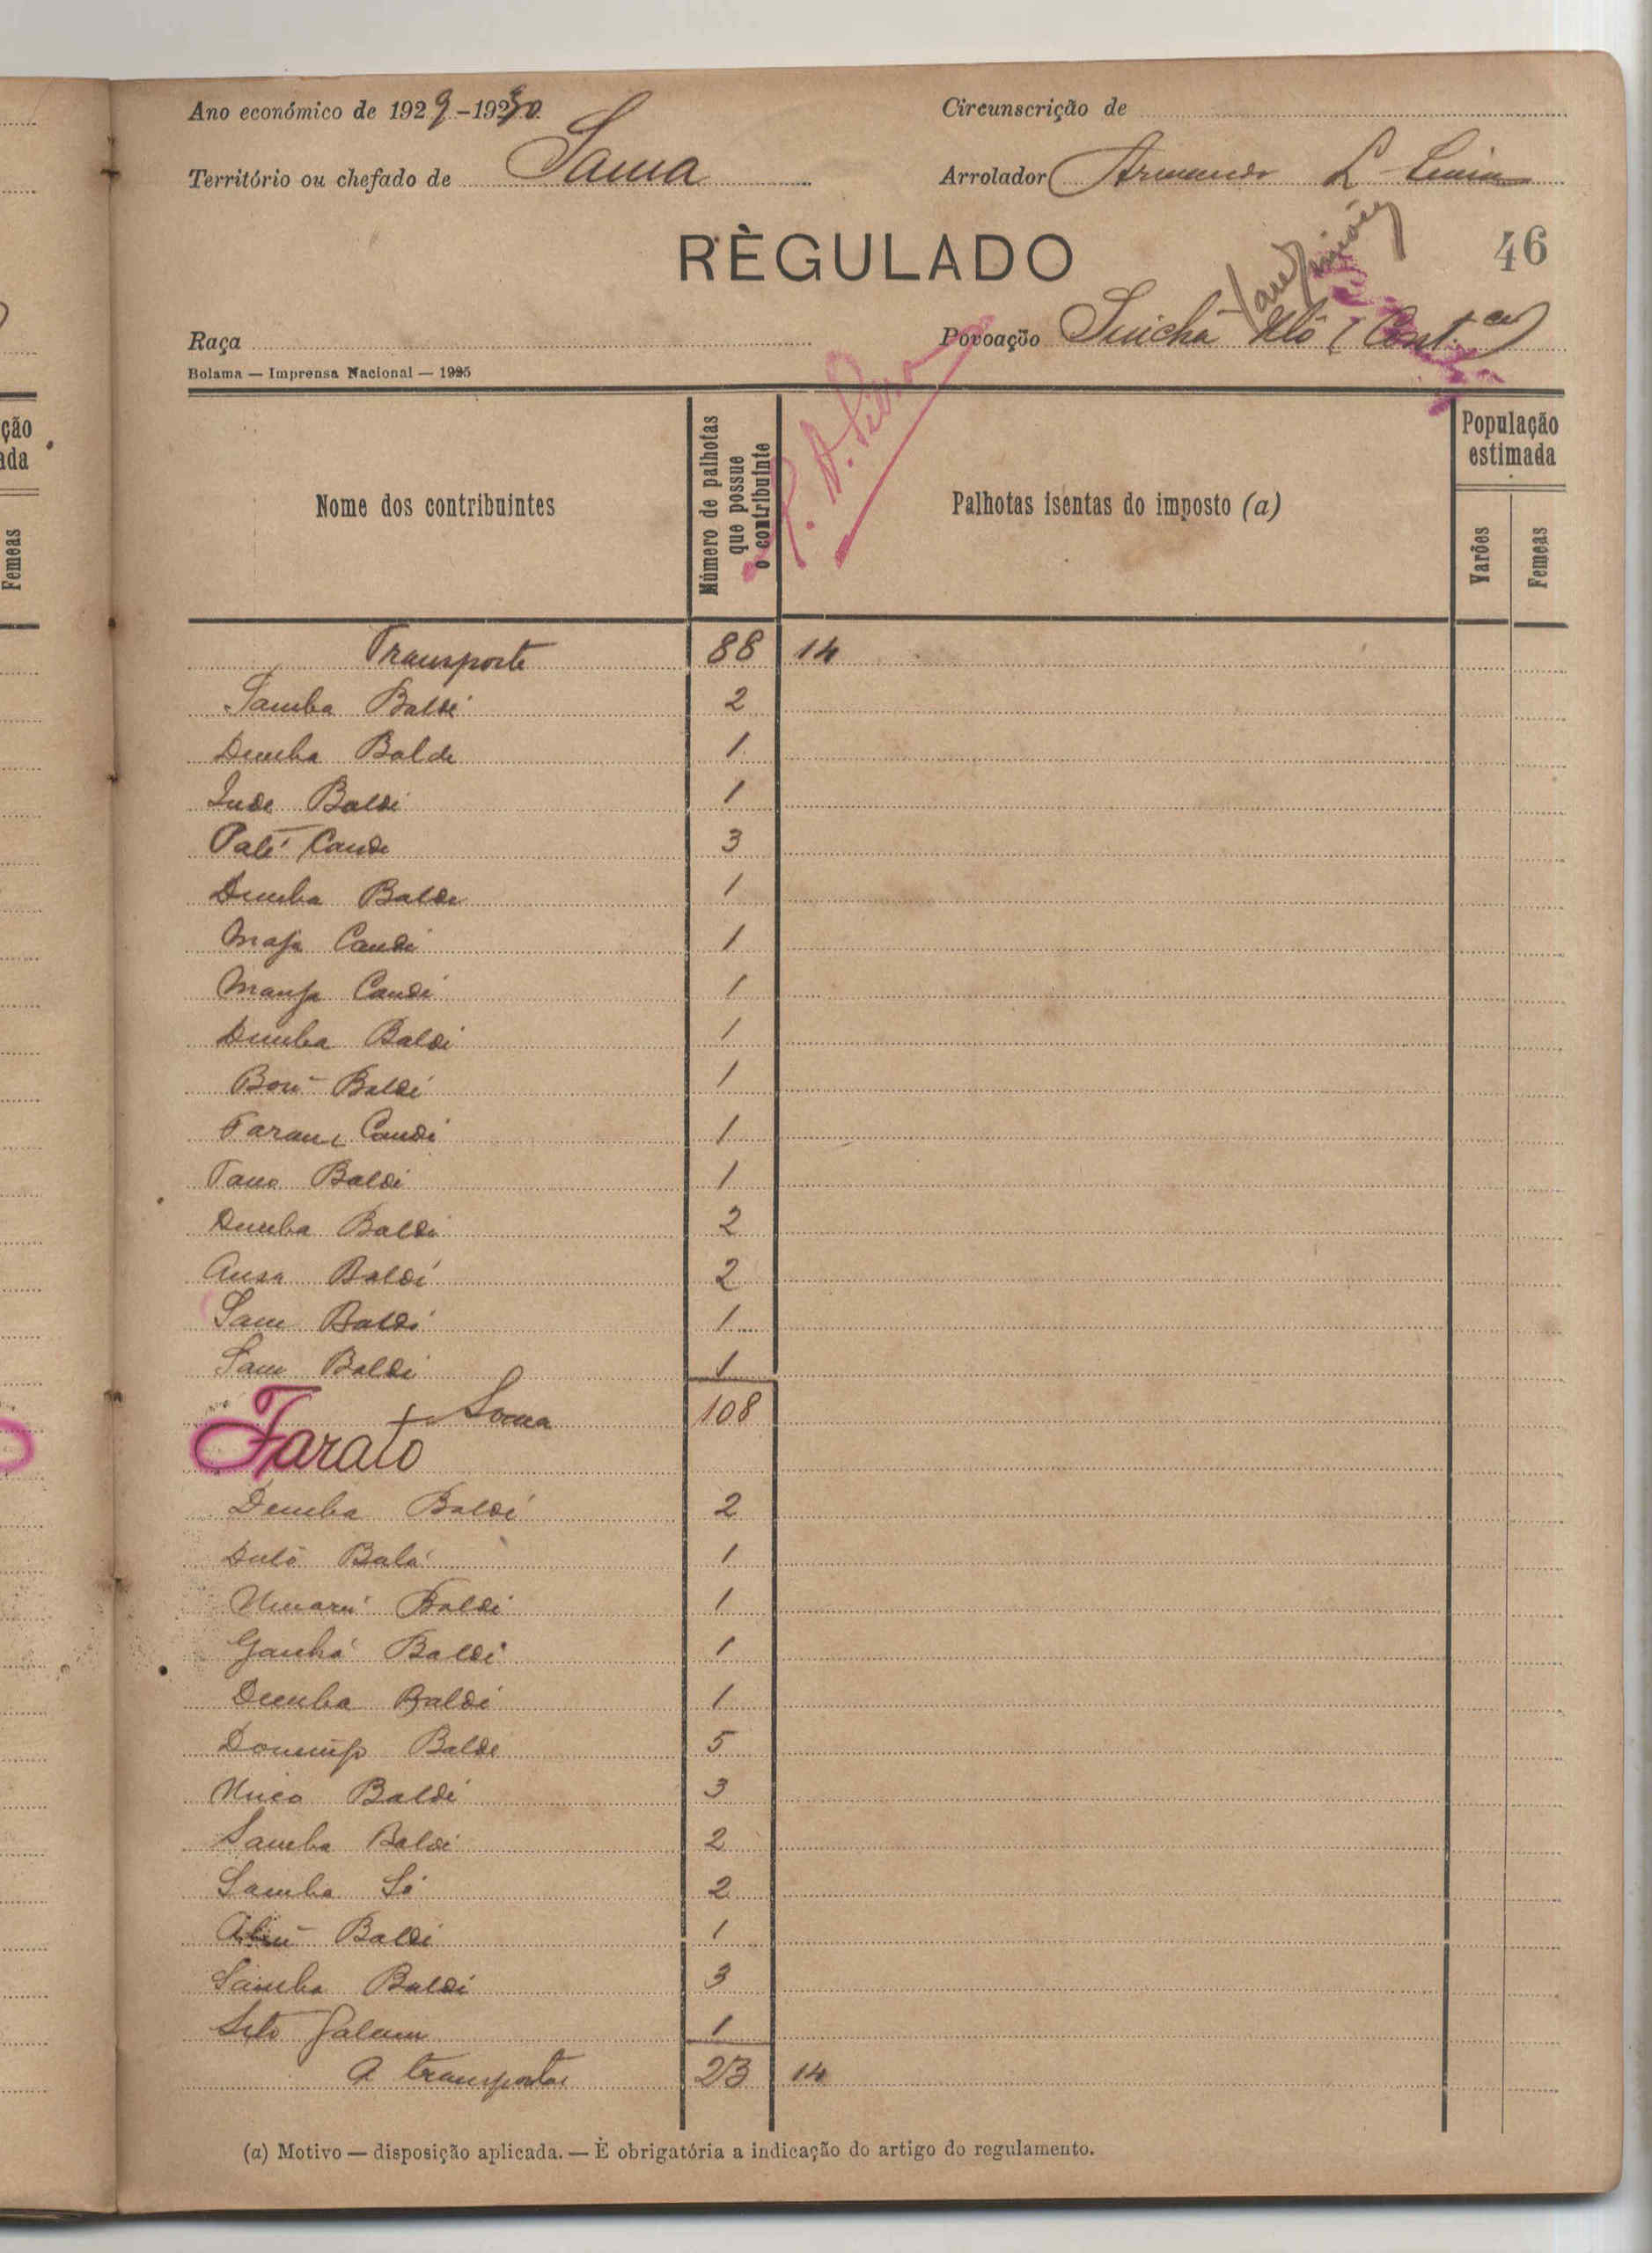 Ano económico de 1929-1930
Circunscrição de
Território ou chefado de Sama
Arrolador Armando L
RÈGULADO
46
Raça
Povoação Sinchã (Cont.
Bolama — Imprensa Nacional — 1925
Nome dos contribuintes
Número de palhotas que possue o contribuinte
Palhotas isentas do imposto (a)
População estimada
Varões
Femeas
Transporte 88 14
Samba Baldé 2
Demba Balde 1
Baldé 1
Paté Cande 3
Demba Balde 1
Candé 1
Candé 1
Demba Baldé 1
Baldé 1
Candé 1
Baldé 1
Demba Baldé 2
Baldé 2
Baldé 1
Baldé 1
Soma 108
Farató
Demba Baldé 2
1
Umarú Baldé 1
Baldé 1
Demba Baldé 1
Balde 5
Baldé 3
Samba Baldé 2
Samba Só 2
Baldé 1
Samba Baldé 3
1
A transportar 23 14
(a) Motivo — disposição aplicada. — È obrigatória a indicação do artigo do regulamento.
ção
ada
Femeas